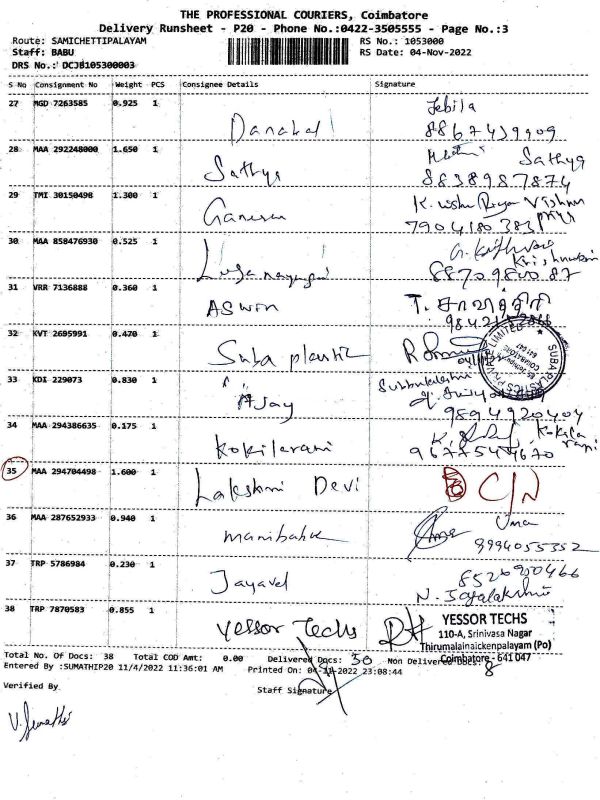 THE PROFESSIONAL COURIERS, Coimbatore
Delivery Runsheet - P20 - Phone No.:0422-3505555 - Page No.:3
Route: SAMICHETTIPALAYAM RS No.: 1053000
Staff: BABU RS Date: 04-Nov-2022
DRS No.: DCJB105300003
S No Consignment No Weight PCS Consignee Details Signature
27 MGD 7263585 0.925 1 Jebila
Danabal 8867439909
28 MAA 292248000 1.650 1 Sathya
Sathya 8838987874
29 TMI 30150498 1.300 1 Vishnu priya
Ganesan 7904180383
30 MAA 858476930 0.525 1
8870984087
31 VRR 7136888 0.360 1
ASWIN
32 KVT 2695991 0.470 1
Suba plastic
SUBA PLASTICS PVT LIMITED
33 KDI 229073 0.830 1 Subbulakshmi
AJay 9894920404
34 MAA 294386635 0.175 1 Kokila rani
Kokilarani
35 MAA 294704498 1.600 1
Lakshmi Devi C/N
36 MAA 287652933 0.940 1 Uma
9994055352
37 TRP 5786984 0.230 1 8526920466
Jayavel N. Jayalakshmi
38 TRP 7870583 0.855 1 YESSOR TECHS
Yessor Techs 110-A, Srinivasa Nagar
Thirumalainaickenpalayam (Po)
Coimbatore - 641 047
Total No. Of Docs: 38 Total COD Amt: 0.00 Delivered Docs: 30 Non Delivered Docs: 8
Entered By :SUMATHIP20 11/4/2022 11:36:01 AM Printed On: 04-11-2022 23:08:44
Verified By Staff Signature